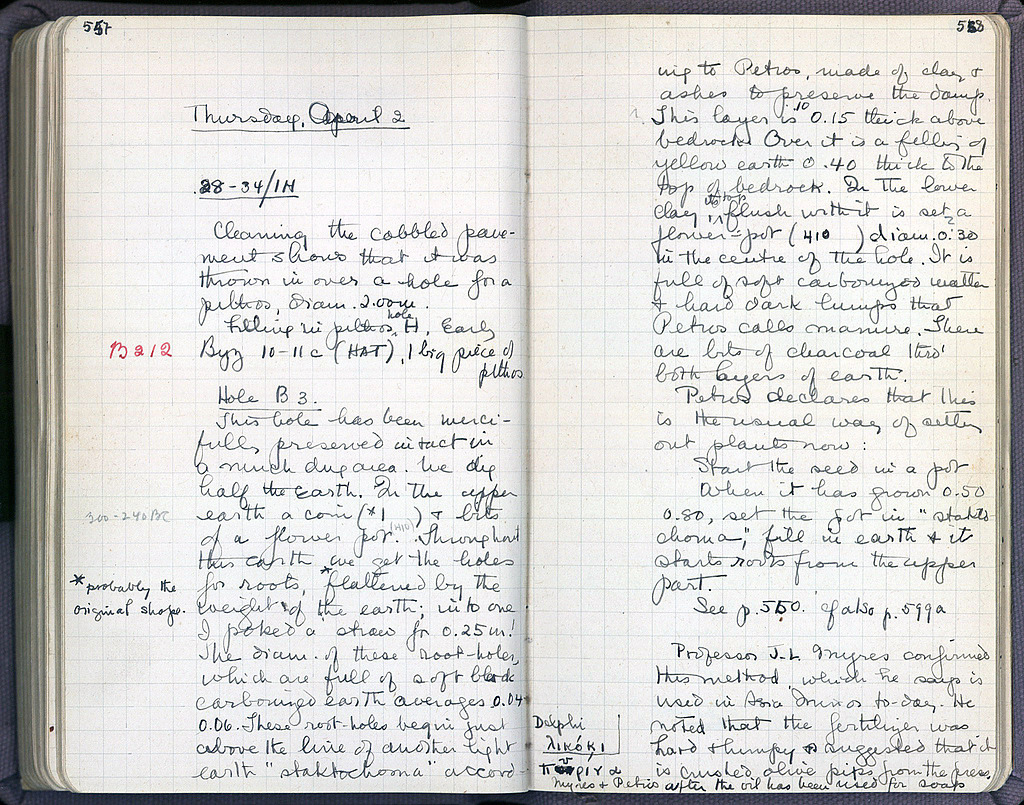 557
Thursday, April 2
28-34/ΙΗ
Cleaning the cobbled pave-
ment shows that it was
thrown in over a hole for a
pithos, diam. 2.00m.
Filling in pithos hole H, Early
B212
Byz 10-11 c (HAT), 1 big piece of
pithos
Hole B 3.
This hole has been merci-
fully preserved intact in
a much dug area. We dig
half the earth. In the upper
300-240 BC
earth a coin (*1 ) & bits
of a flower pot. (H10) Throughout
this earth we get the holes
*probably the
original shape.
for roots, *flattened by the
weight of the earth; into one
I poked a straw for 0.25m!
The diam. of these root-holes,
which are full of soft black
carbonized earth averages 0.04
0.06. These root-holes begin just
above the line of another light
earth "staktochoma" accord-
558
ing to Petros, made of clay &
ashes to preserve the damp.
This layer is .10 0.15 thick above
bedrock. Over it is a filling of
yellow earth 0.40 thick to the
top of bedrock. In the lower
clay, its top flush with it is set a
flower-pot (H10 ) diam. 0.30
in the centre of the hole. It is
full of soft carbonyzed matter
& hard dark lumps that
Petros calls manure. There
are bits of charcoal thro'
both layers of earth.
Petros declares that this
is the usual way of setting
out plants now:
Start the seed in a pot
When it has grown 0.50
0.80, set the pot in "stakto
choma," fill in earth & it
starts roots from the upper
part.
See p. 550. cf also p. 599a
Professor J. L. Myres confirmed
this method which he says is
used in Asia Minor to-day. He
noted that the fertilizer was
hard & lumpy & suggested that it
is crushed olive pips from the press,
Myres & Petros after the oil has been used for soap
Delphi
λικόκι